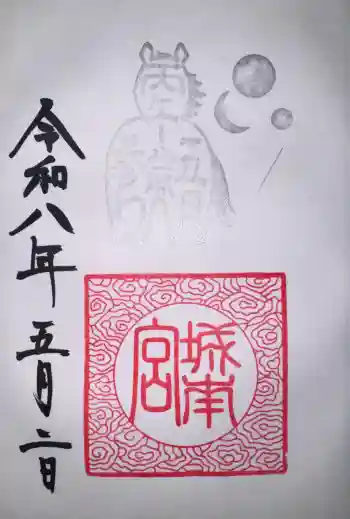 令和八年 五月二日
城南
宮